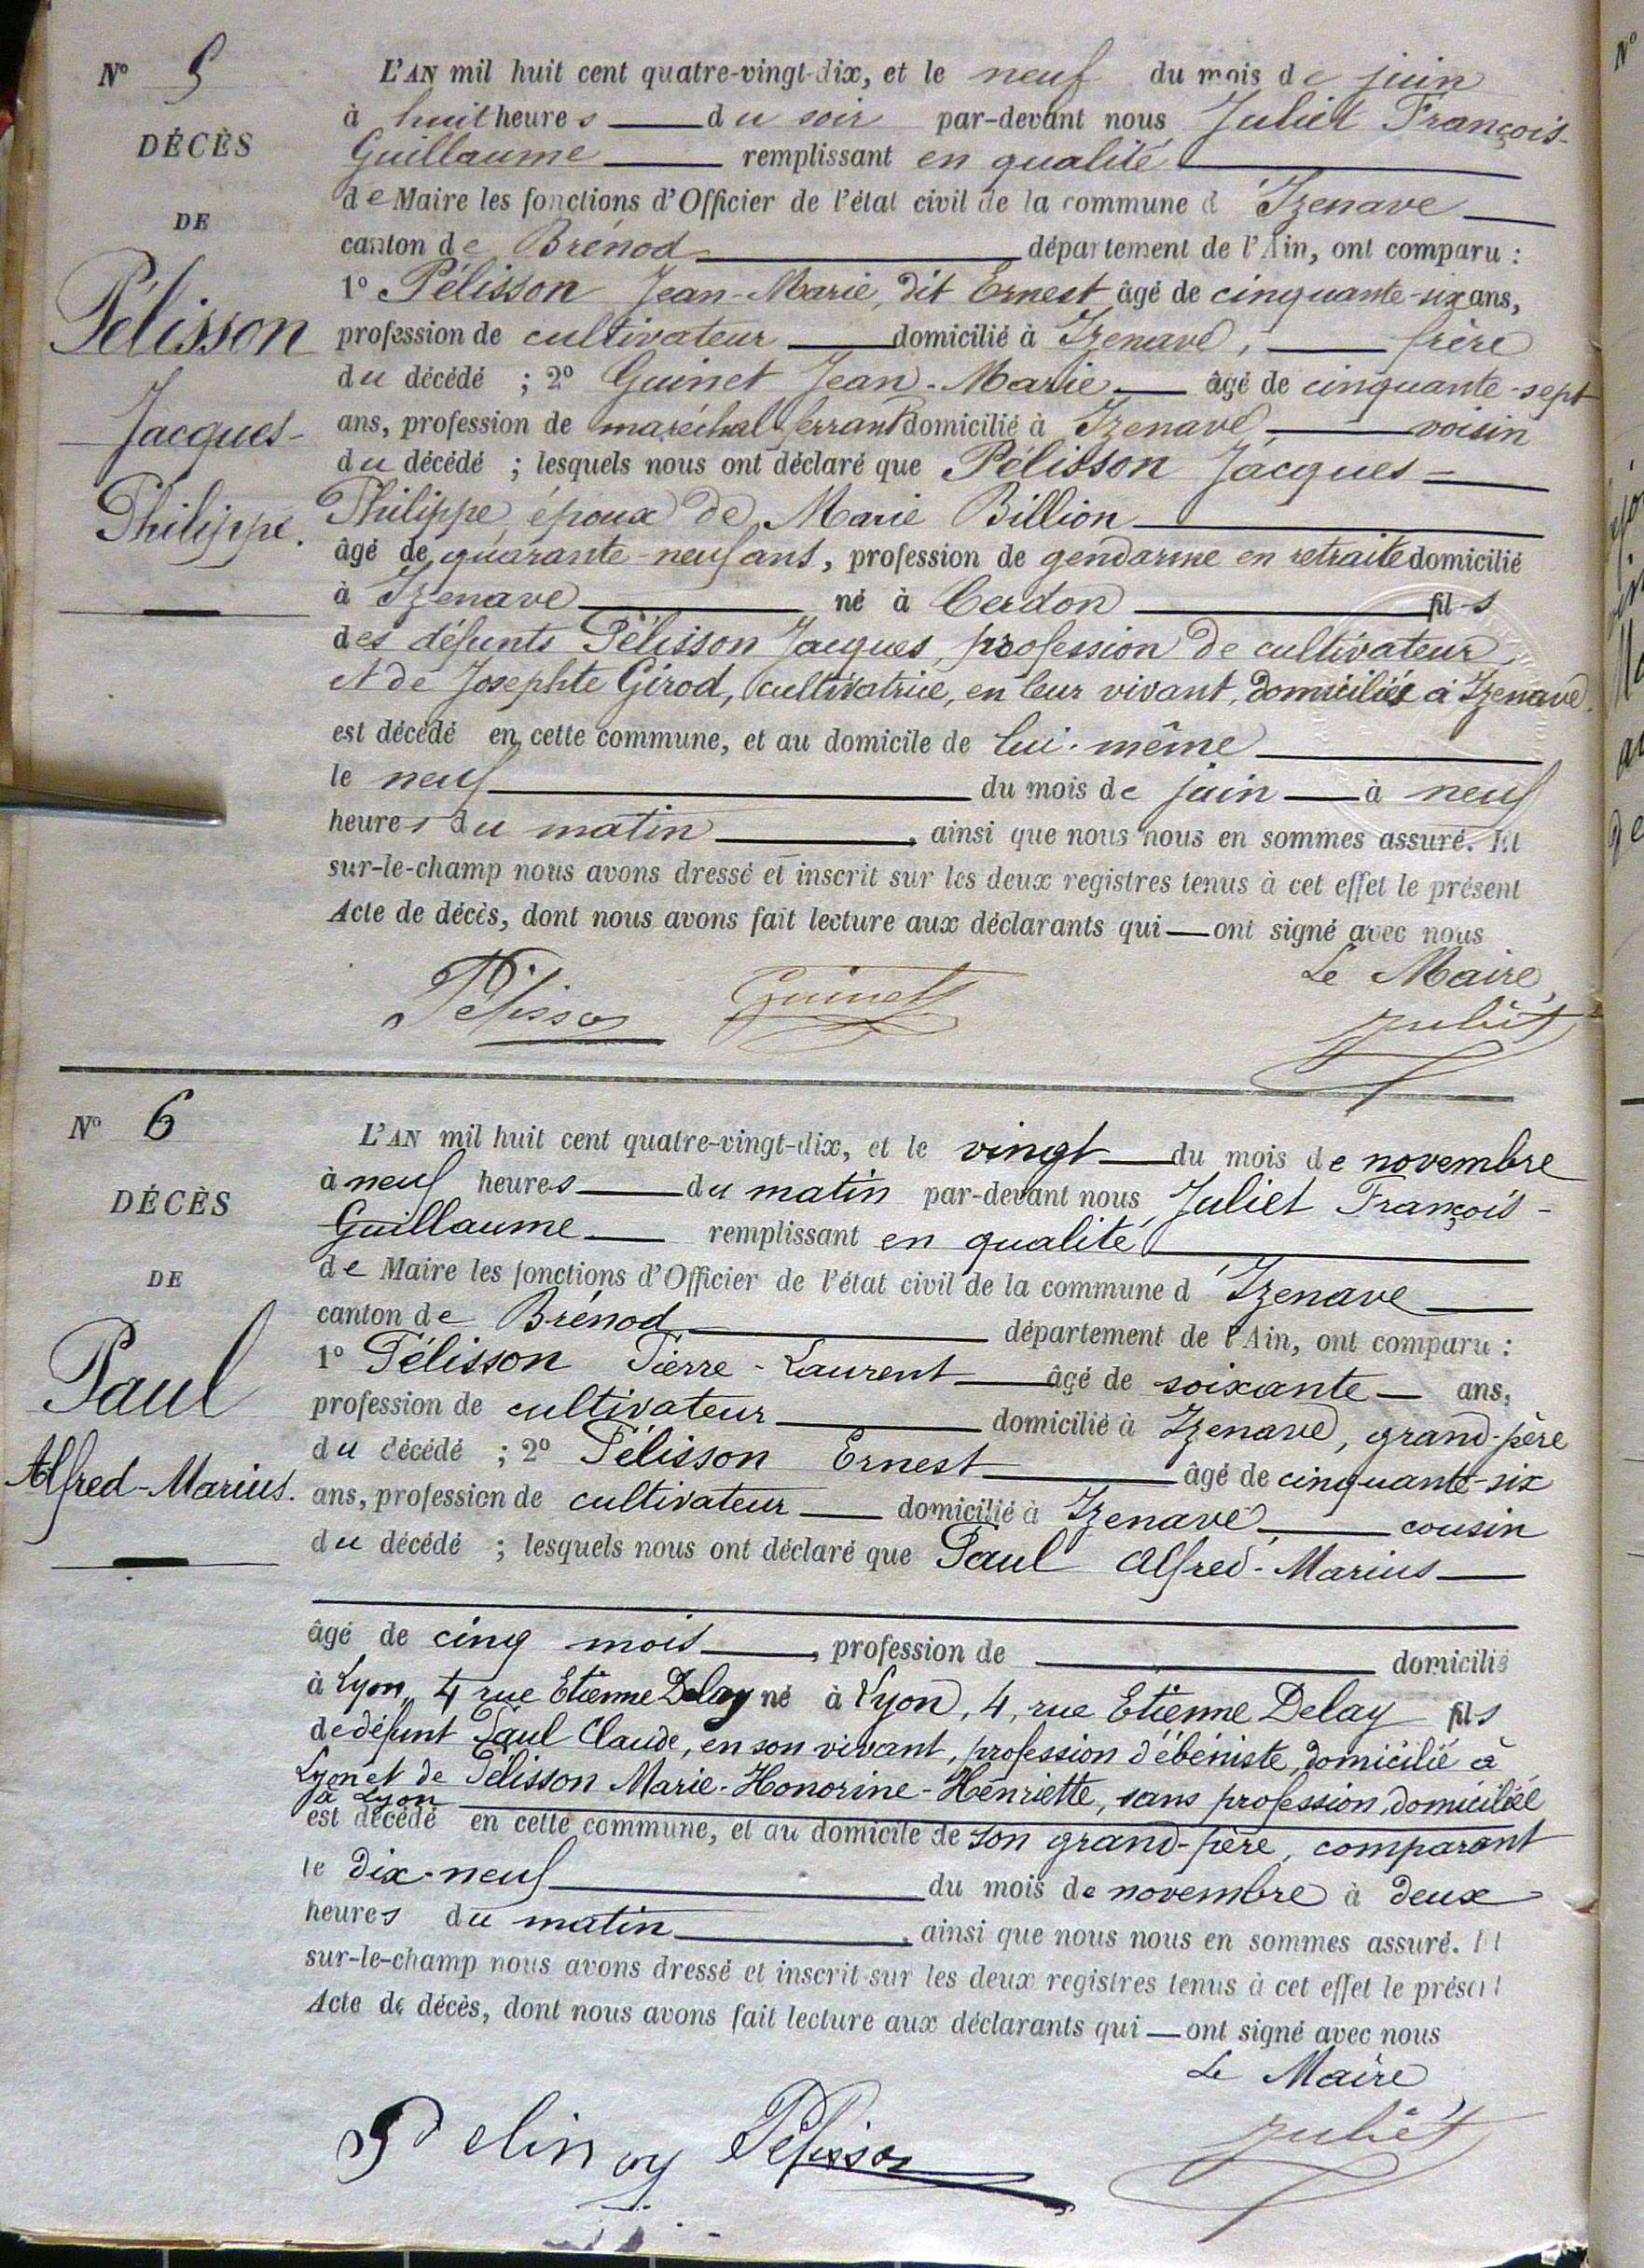 N° 5
DÉCÈS
DE
Pélisson
Jacques-
Philippe.
L'AN mil huit cent quatre-vingt-dix, et le neuf du mois de juin
à huit heures du soir par-devant nous Juliet François-
Guillaume remplissant en qualité
de Maire les fonctions d'Officier de l'état civil de la commune d'Izenave
canton de Brénod département de l'Ain, ont comparu :
1° Pélisson Jean-Marie, dit Ernest âgé de cinquante-six ans,
profession de cultivateur domicilié à Izenave, frère
du décédé ; 2° Guinet Jean-Marie âgé de cinquante-sept
ans, profession de maréchal ferrant domicilié à Izenave, voisin
du décédé ; lesquels nous ont déclaré que Pélisson Jacques-
Philippe, époux de Marie Billion
âgé de quarante-neuf ans, profession de gendarme en retraite domicilié
à Izenave né à Cerdon fils
des défunts Pélisson Jacques, profession de cultivateur,
et de Josephte Girod, cultivatrice, en leur vivant, domiciliés à Izenave.
est décédé en cette commune, et au domicile de lui-même
le neuf du mois de juin à neuf
heures du matin, ainsi que nous nous en sommes assuré. Et
sur-le-champ nous avons dressé et inscrit sur les deux registres tenus à cet effet le présent
Acte de décès, dont nous avons fait lecture aux déclarants qui — ont signé avec nous
Le Maire,
Pélisson Guinet Juliet
N° 6
DÉCÈS
DE
Paul
Alfred-Marius.
L'AN mil huit cent quatre-vingt-dix, et le vingt du mois de novembre
à neuf heures du matin par-devant nous Juliet François-
Guillaume remplissant en qualité
de Maire les fonctions d'Officier de l'état civil de la commune d'Izenave
canton de Brénod département de l'Ain, ont comparu :
1° Pélisson Pierre-Laurent âgé de soixante ans,
profession de cultivateur domicilié à Izenave, grand-père
du décédé ; 2° Pélisson Ernest âgé de cinquante-six
ans, profession de cultivateur domicilié à Izenave, cousin
du décédé ; lesquels nous ont déclaré que Paul Alfred-Marius
âgé de cinq mois, profession de domicilié
à Lyon, 4 rue Etienne Delay né à Lyon, 4, rue Etienne Delay fils
de défunt Paul Claude, en son vivant, profession d'ébéniste, domicilié à
Lyon et de Pélisson Marie-Honorine-Henriette, sans profession, domiciliée
à Lyon
est décédé en cette commune, et au domicile de son grand-père, comparant
le dix-neuf du mois de novembre à deux
heures du matin, ainsi que nous nous en sommes assuré. Et
sur-le-champ nous avons dressé et inscrit sur les deux registres tenus à cet effet le présent
Acte de décès, dont nous avons fait lecture aux déclarants qui — ont signé avec nous
Le Maire
Pélisson Juliet